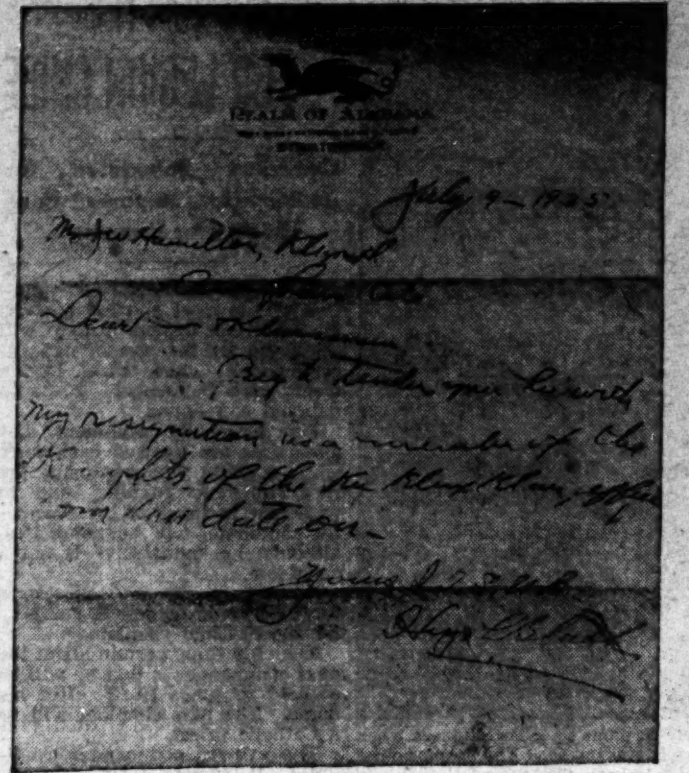 REALM OF ALABAMA
July 9 - 1925
Mr J W Hamilton, Kligrapp
Dear Klansman
Beg to tender you herewith
my resignation as a member of the
Knights of the Ku Klux Klan, effective
from this date on -
Yours I. T. S. U. B.
Hugo L Black